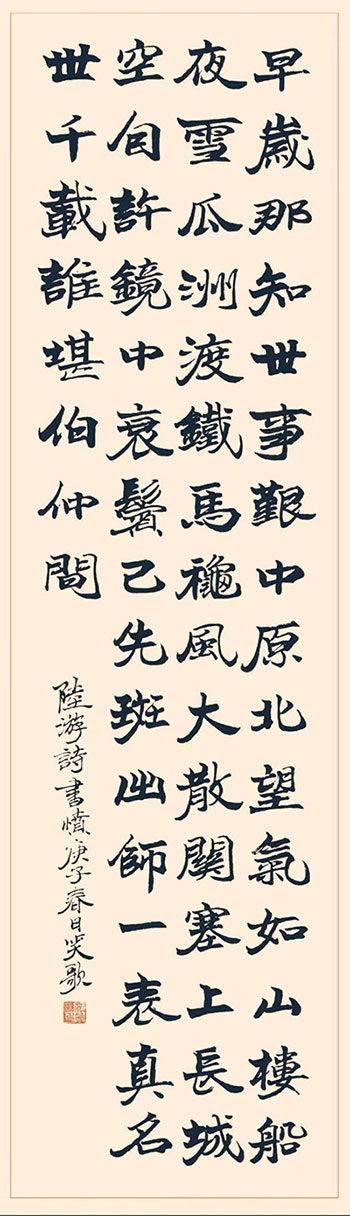 早歲那知世事艱中原北望氣如山樓船
夜雪瓜洲渡鐵馬龝風大散關塞上長城
空自許鏡中衰鬢已先斑出師一表真名
世千載誰堪伯仲間
陸游詩書憤庚子春日笑歌